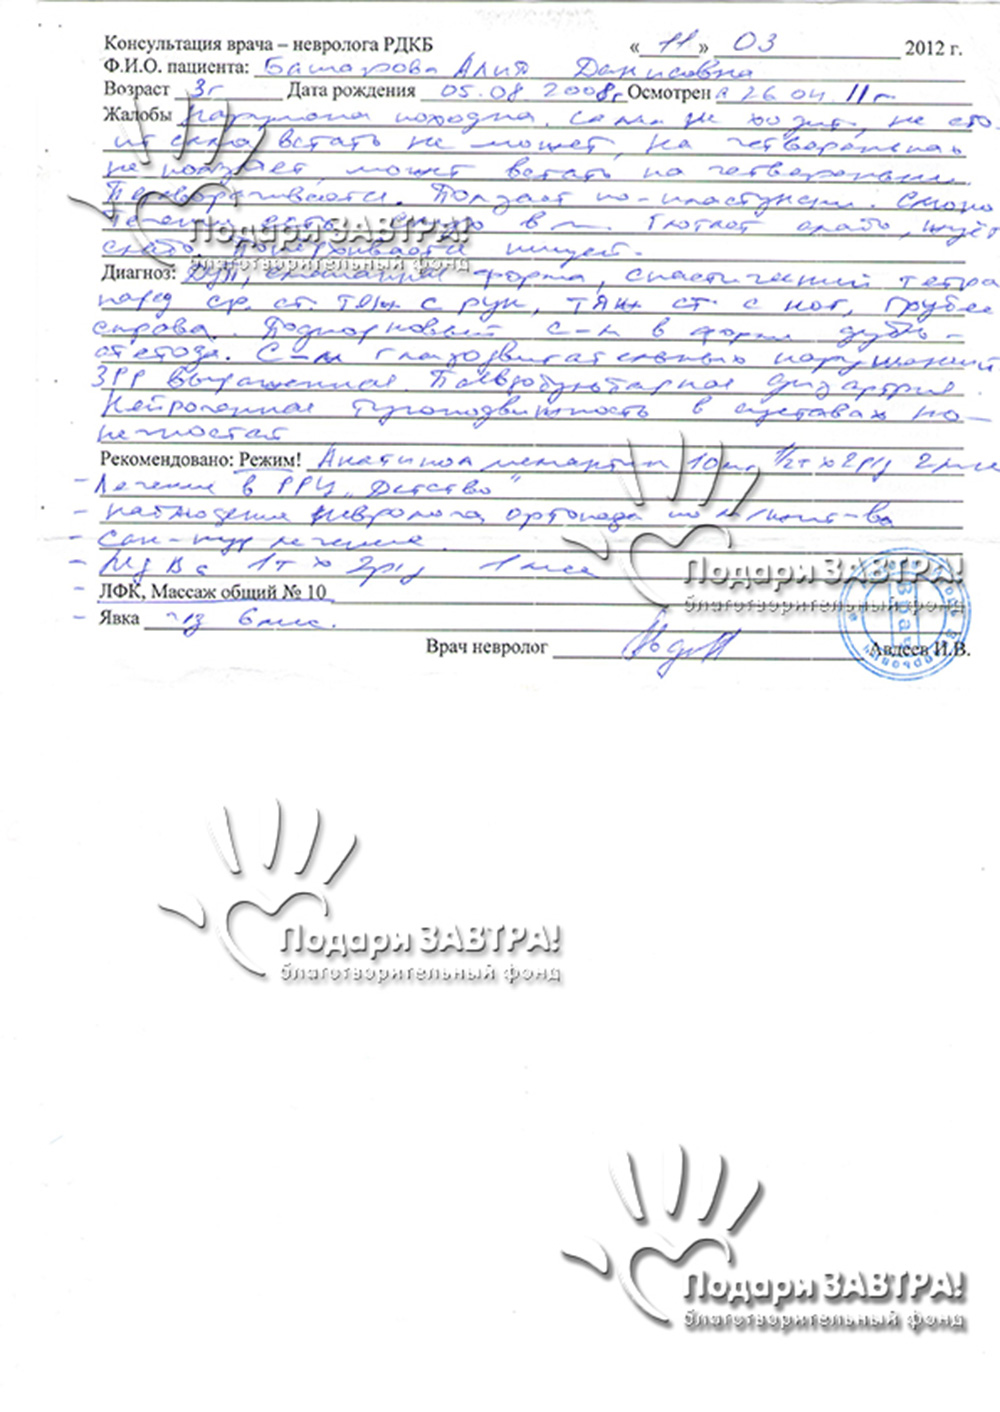 Консультация врача – невролога РДКБ « 11 » 03 2012 г.
Ф.И.О. пациента: Башарова Алия Данисовна
Возраст 3г Дата рождения 05.08 2008г Осмотрен 26 04 11г
Жалобы походка. сама не ходит, не сто-
ит сама встать не может, на четвереньках
не ползает, может встать на четвереньки.
Переворачивается. Ползает по-пластунски.
Глотает слабо, жуёт
слабо, поперхивается пищей.
Подари ЗАВТРА!
благотворительный фонд
Диагноз: ДЦП, смешанная форма, спастический тетра
парез ср. ст. тяж с рук, тяж ст. с ног, грубее
справа. Подкорковый с-м в форме
атетоза. С-м глазодвигательных нарушений.
ЗРР выраженная. Псевдобульбарная дизартрия.
Нейрогенная тугоподвижность в суставах ко-
нечностей
Рекомендовано: Режим! Акатинол мемантин 10мг 1/2т х 2р/д 2мес
- Лечение в РРЦ „Детство"
- наблюдение невролога, ортопеда по м/жит-ва
- Сан-кур лечение.
- Mg B6 1т х 2р/д 1 мес
Подари ЗАВТРА!
благотворительный фонд
- ЛФК, Массаж общий № 10
- Явка чз 6 мес.
Врач невролог Авдеев И.В.
Врач
Подари ЗАВТРА!
благотворительный фонд
Подари ЗАВТРА!
благотворительный фонд